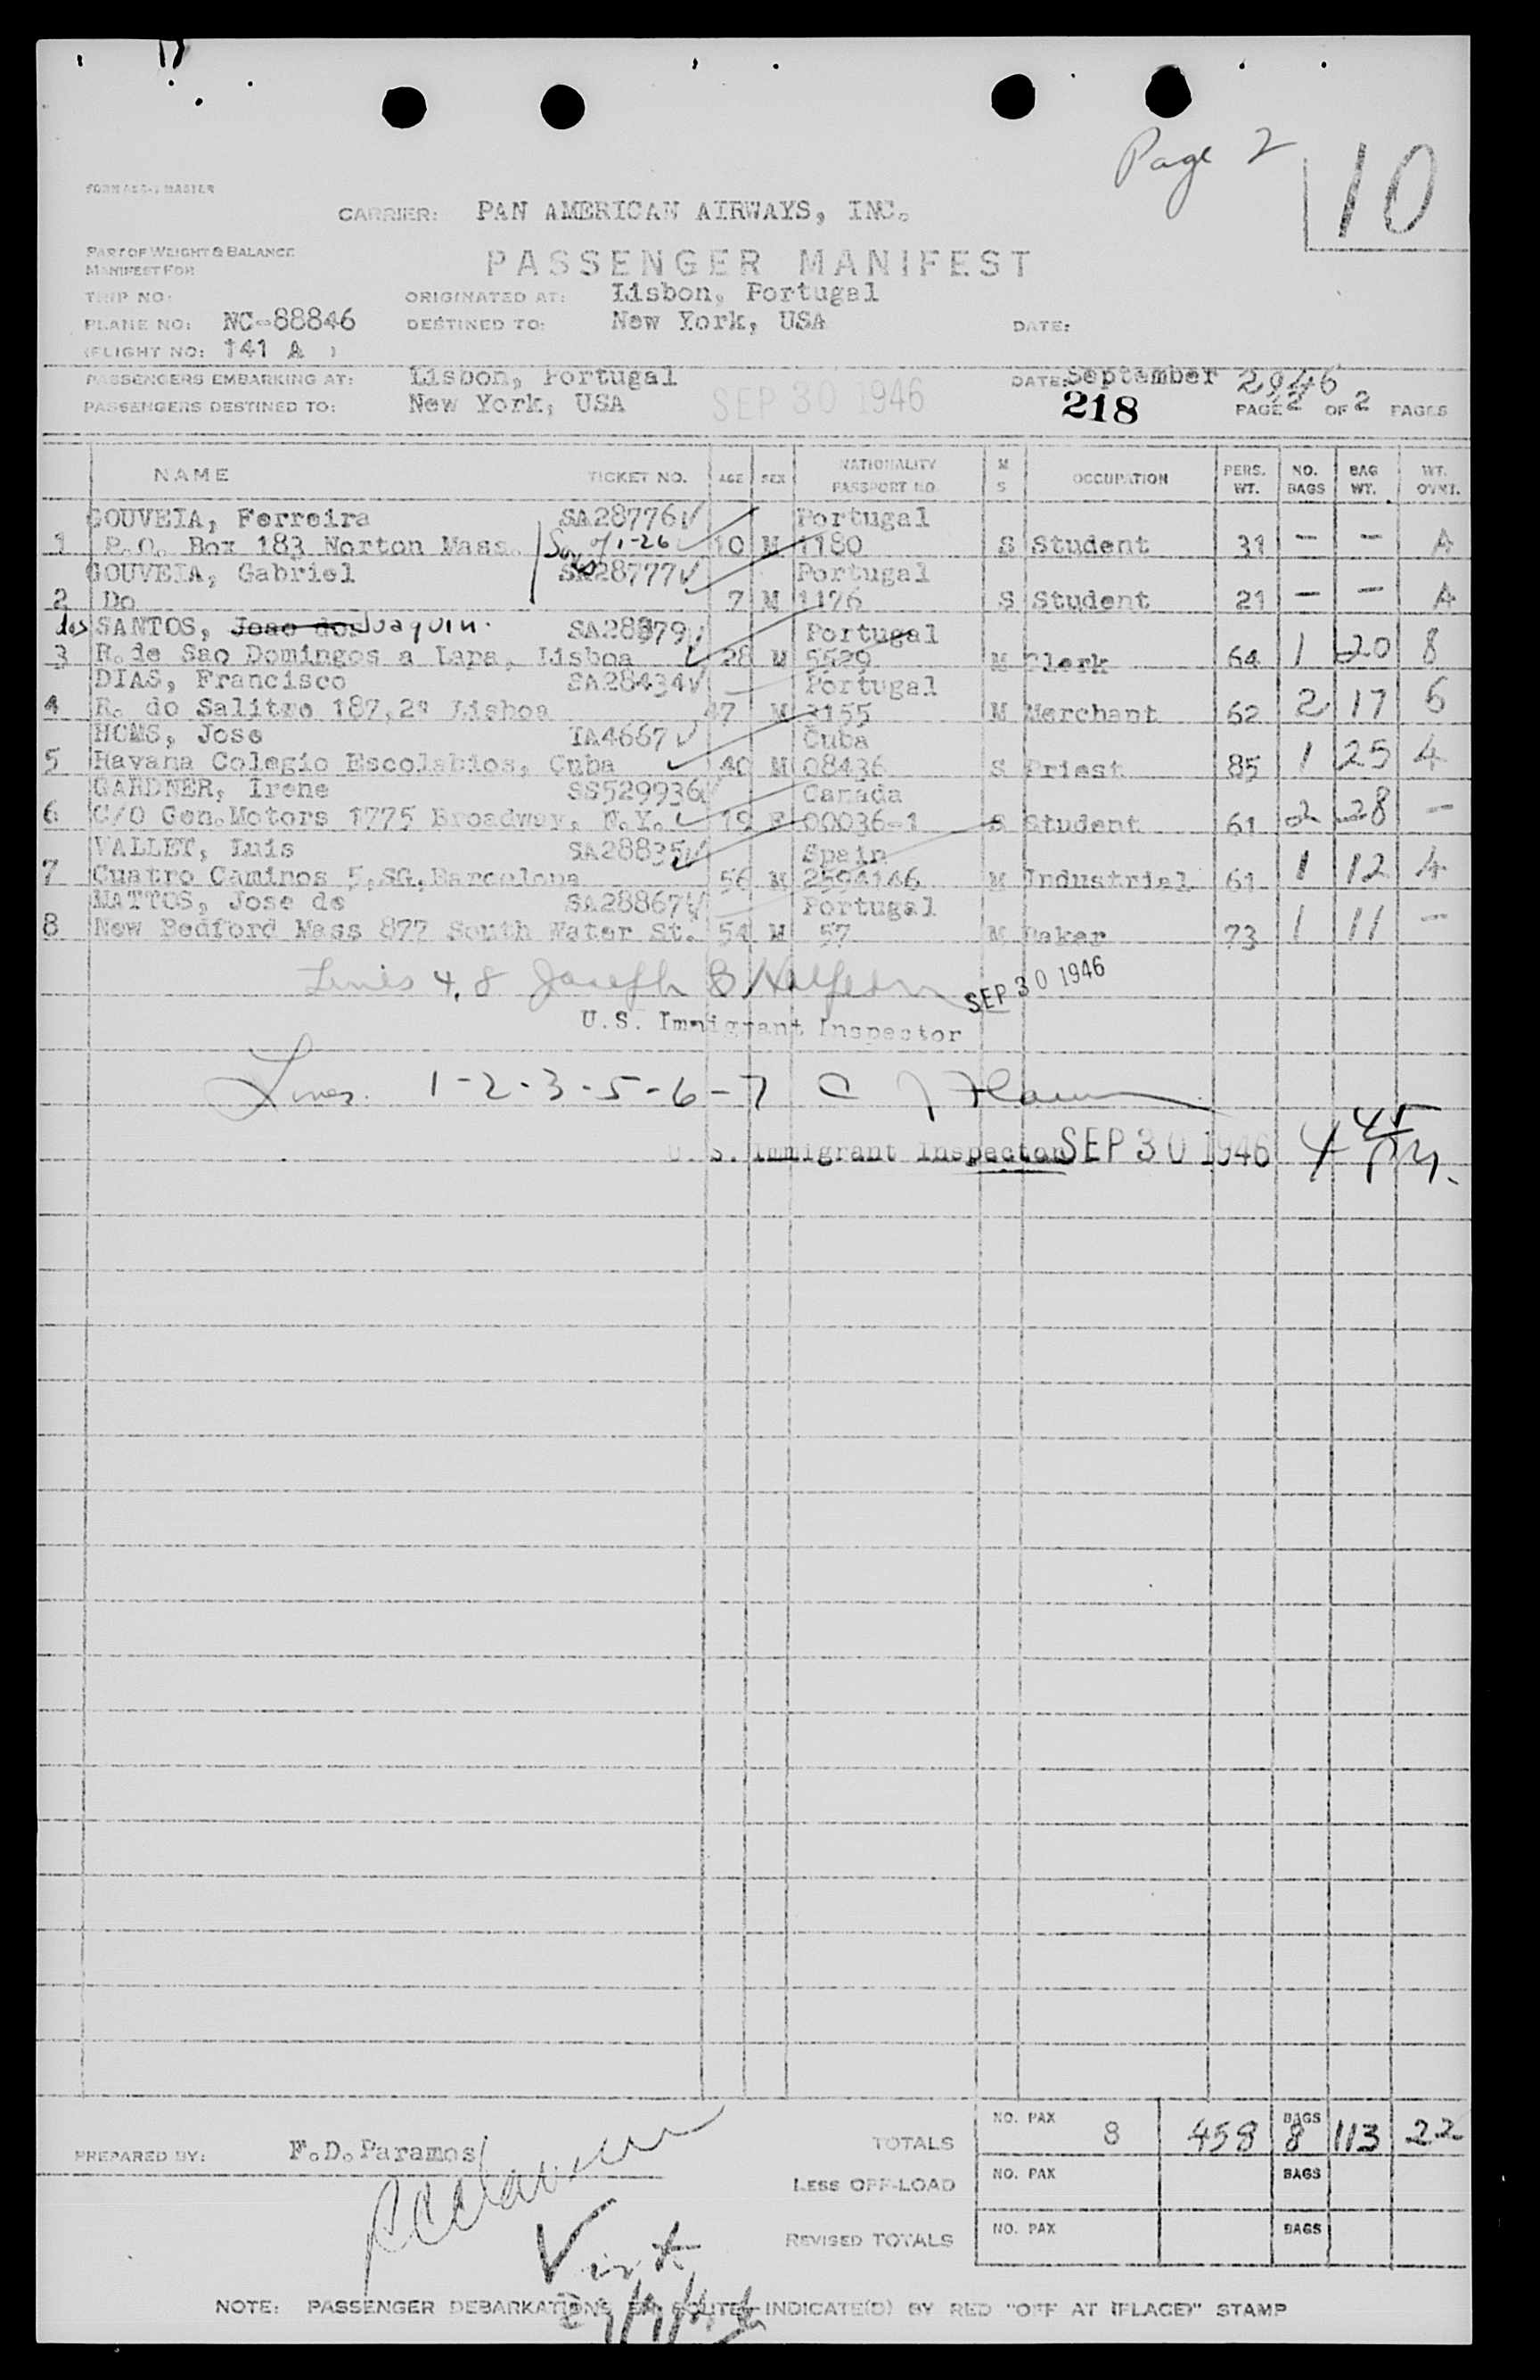 Page 2
10
CARRIER: PAN AMERICAN AIRWAYS, INC.
PART OF WEIGHT & BALANCE
MANIFEST FOR
PASSENGER MANIFEST
TRIP NO:
ORIGINATED AT: Lisbon, Portugal
PLANE NO: NC-88846
DESTINED TO: New York, USA
DATE:
(FLIGHT NO: 141 A )
PASSENGERS EMBARKING AT: Lisbon, Portugal
DATE: September
PASSENGERS DESTINED TO: New York, USA
SEP 30 1946
218
PAGE 2 OF 2 PAGES
NAME TICKET NO. AGE SEX NATIONALITY PASSPORT NO. M S OCCUPATION PERS. WT. NO. BAGS BAG WT. WT. OVWT.
GOUVEIA, Ferreira SA28776 Portugal
1 P.O. Box 183 Norton Mass. 10 M 1180 S Student 31 - - A
GOUVEIA, Gabriel SA28777 Portugal
2 Do 7 M 1176 S Student 21 - - A
dos SANTOS, Joao dos Joaquin. Portugal
3 R.de Sao Domingos a Lapa, Lisboa 28 M 5529 M Clerk 64 1 20 8
DIAS, Francisco SA28434 Portugal
4 R. do Salitre 187,2º Lisboa 47 M 3155 M Merchant 62 2 17 6
HOMS, Jose IA4667 Cuba
5 Havana Colegio Escolabios, Cuba 40 M 08436 S Priest 85 1 25 4
GARDNER, Irene SS529936 Canada
6 C/O Gen.Motors 1775 Broadway, N.Y. 19 F 00036-1 S Student 61 2 28 -
VALLET, Luis SA28835 Spain
7 Cuatro Caminos 5,SG,Barcelona 56 M 2594146 M Industrial 61 1 12 4
MATTOS, Jose de SA28867 Portugal
8 New Bedford Mass 877 South Water St. 54 M 57 M Baker 73 1 11 -
Lines 4, 8 Joseph B Halfern SEP 30 1946
U.S. Immigrant Inspector
Lines. 1-2-3-5-6-7
U. S. Immigrant Inspector SEP 30 1946
TOTALS NO. PAX 8 458 BAGS 8 113 22
PREPARED BY: F.D.Paramos
LESS OFF-LOAD NO. PAX BAGS
REVISED TOTALS NO. PAX BAGS
NOTE: PASSENGER DEBARKATIONS EN ROUTE INDICATE(D) BY RED "OFF AT (PLACE)" STAMP